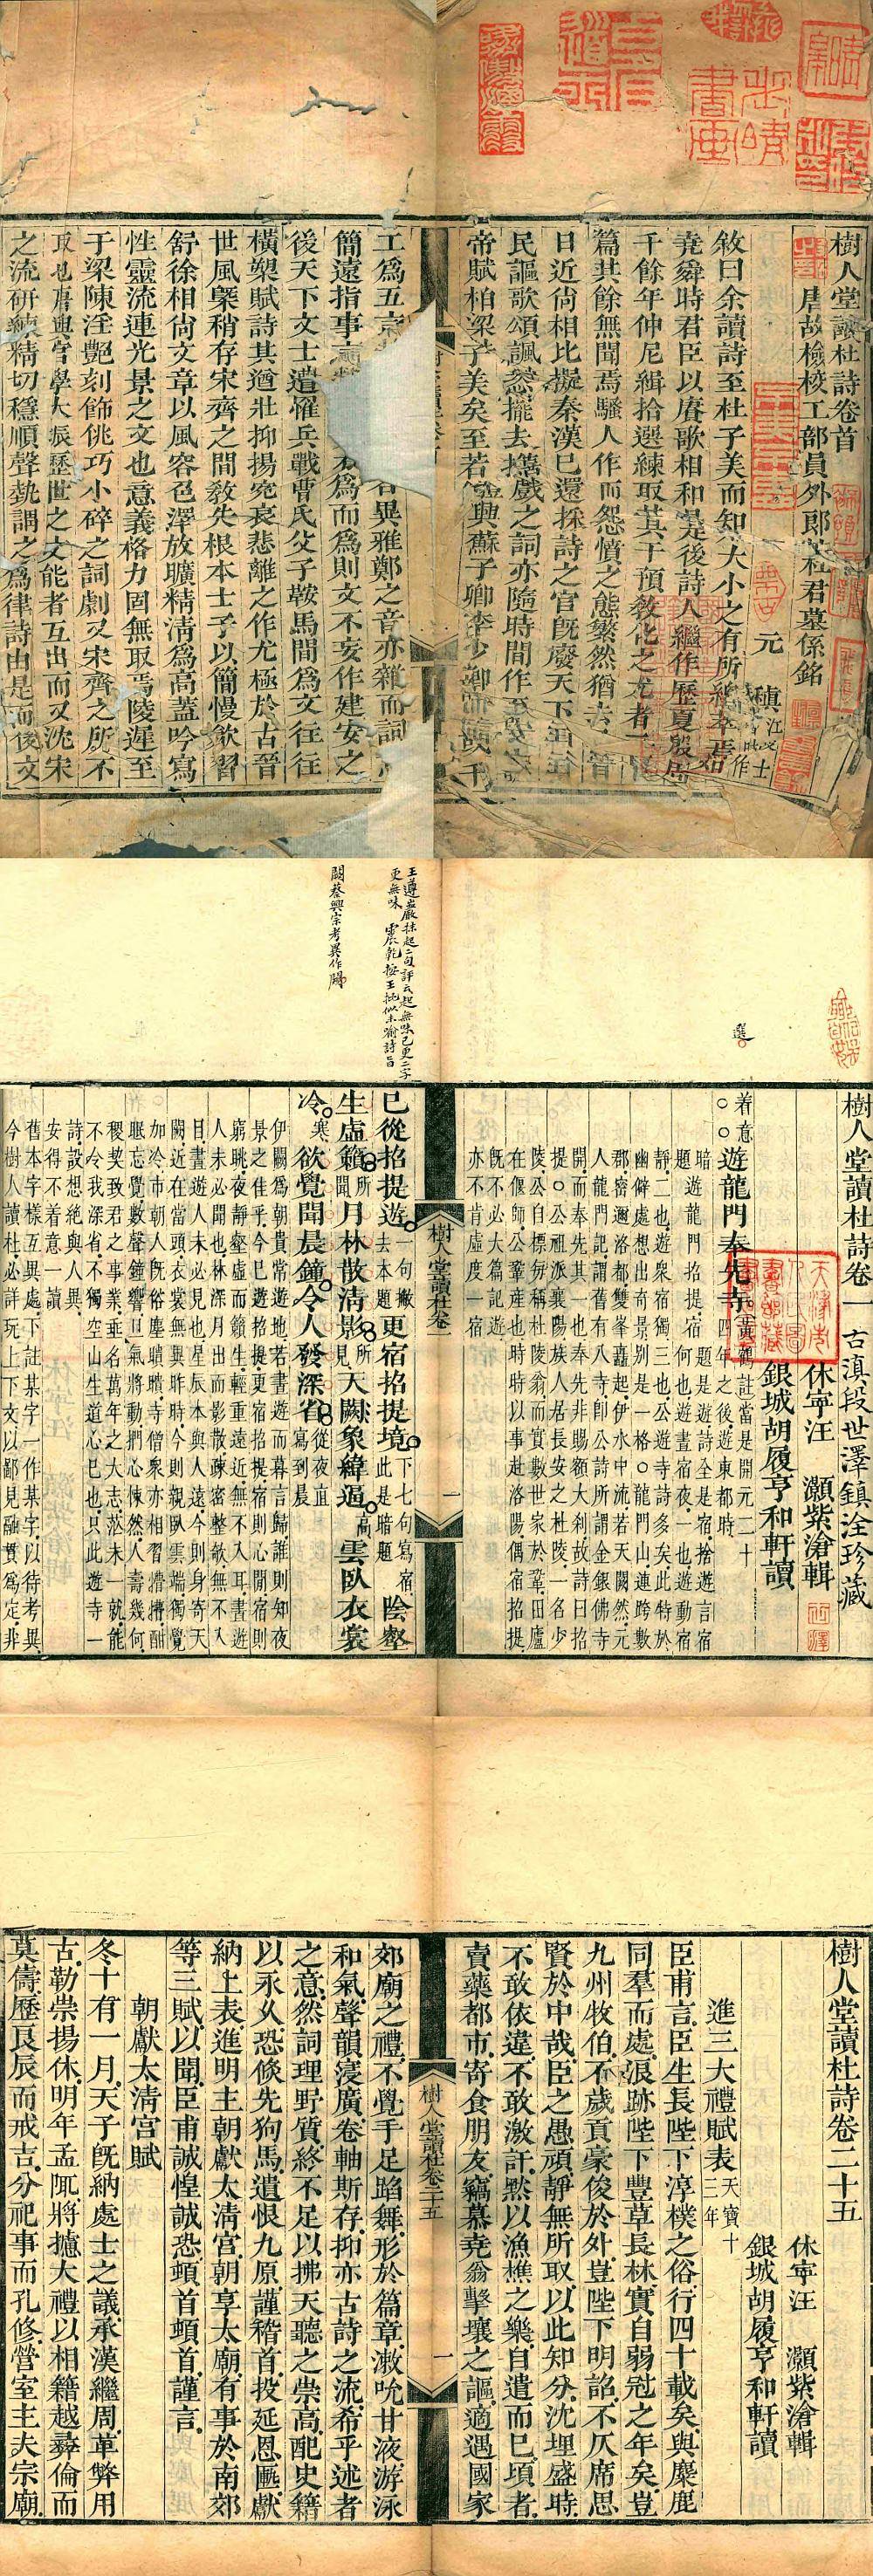 樹人堂讀杜詩卷首
唐故檢校工部員外郎杜君墓係銘
元 稹 江陵士 時作
敘曰余讀詩至杜子美而知大小之有所總萃焉始
堯舜時君臣以賡歌相和是後詩人繼作歷夏殷周
千餘年仲尼緝拾選練取其干預教化之尤者三百
篇其餘無聞焉騷人作而怨憤之態繁然猶去
日近尚相比擬秦漢已還採詩之官既廢天下
民謳歌頌諷
帝賦柏梁
工為五言
簡遠指事
後天下文士遭罹兵戰曹氏父子鞍馬間為文往往
橫槊賦詩其遒壯抑揚冤哀悲離之作尤極於古晉
世風槩稍存宋齊之間教失根本士子以簡慢歙習
舒徐相尚文章以風容色澤放曠精清為高蓋吟寫
性靈流連光景之文也意義格力固無取焉陵遲至
于梁陳淫艷刻飾佻巧小碎之詞劇又宋齊之所不
取也唐興官學大振歷世之文能者互出而又沈宋
之流研練精切穩順聲勢謂之為律詩由是而後文
樹人堂讀杜詩卷一 古滇段世澤鎮淦珍藏
休寧汪 灝紫滄輯
銀城胡履亨和軒讀
選
着意○○遊龍門奉先寺 黃鶴註當是開元二十四年之後遊東都時
暗遊龍門招提宿 題是遊詩全是宿捨遊言宿
題 何也遊晝宿夜一也遊動宿
靜二也遊衆宿獨三也公遊寺詩多矣此特於
幽僻處想出奇景別是一格○龍門山連跨數
郡密邇洛都雙峯矗起伊水中流若天闕然元
人龍門記謂舊有八寺卽公詩所謂金銀佛寺
開而奉先其一也奉先非賜額大刹故詩曰招
提○公祖派襄陽族人居長安之杜陵一名少
陵公自標每稱杜陵翁而實數世家於鞏田廬
在偃師公鞏產也時時以事赴洛陽偶宿招提
既不必大篇記遊
亦不肯虛度一宿
樹人堂讀杜卷一
一
王遵巖抹起二句評云起無味已更二字
更無味 震乾按王批似未喻詩旨
闕蔡興宗考異作闚
已從招提遊 一句撇去本題 更宿招提境 下七句寫宿此是暗題 陰壑
生虛籟 所聞 月林散清影 所見 天闕象緯逼 高 雲臥衣裳
冷 寒 欲覺聞晨鐘令人發深省 從夜直寫到晨
伊闕為朝貴常遊地若晝遊而暮言歸誰則知夜
景之佳乎今已遊招提更宿招提宿則心閒宿則
窮眺夜靜壑虛而籟生輕重遠近無不入耳晝遊
人未必聞也林深月出而影散疎密整欹無不入
目晝遊人未必見也星辰本與人遠今則身寄天
闕近在當頭衣裳無異昨時今則親臥雲端獨覺
加冷市朝人既俗塵瞶瞶寺僧衆亦相習漕漕酣
睡忘覺數聲鐘響旦氣將動捫心悚然人壽幾何
稷契致君之事業垂名萬年之大志茫未一就能
不令我深省不獨空山生道心已也只此遊寺一
詩設想絕與人異
安得不着意一讀
舊本字樣互異處下註某字一作某字以待考異
今樹人讀杜必詳玩上下文以鄙見融貫為定非
樹人堂讀杜詩卷二十五
休寧汪 灝紫滄輯
銀城胡履亨和軒讀
進三大禮賦表 天寶十三年
臣甫言臣生長陛下淳樸之俗行四十載矣與麋鹿
同羣而處浪跡陛下豐草長林實自弱冠之年矣豈
九州牧伯不歲貢豪俊於外豈陛下明詔不仄席思
賢於中哉臣之愚頑靜無所取以此知分沈埋盛時
不敢依違不敢激訐默以漁樵之樂自遣而已頃者
賣藥都市寄食朋友竊慕堯翁擊壤之謳適遇國家
樹人堂讀杜卷二十五
一
郊廟之禮不覺手足蹈舞形於篇章漱吮甘液游泳
和氣聲韻寖廣卷軸斯存抑亦古詩之流希乎述者
之意然詞理野質終不足以拂天聽之崇高配史籍
以永久恐倏先狗馬遺恨九原謹稽首投延恩匭獻
納上表進明主朝獻太清宮朝享太廟有事於南郊
等三賦以聞臣甫誠惶誠恐頓首頓首謹言
朝獻太清宮賦
冬十有一月天子既納處士之議承漢繼周革弊用
古勒崇揚休明年孟陬將攄大禮以相籍越彝倫而
莫儔歷良辰而戒吉分祀事而孔修營室主夫宗廟